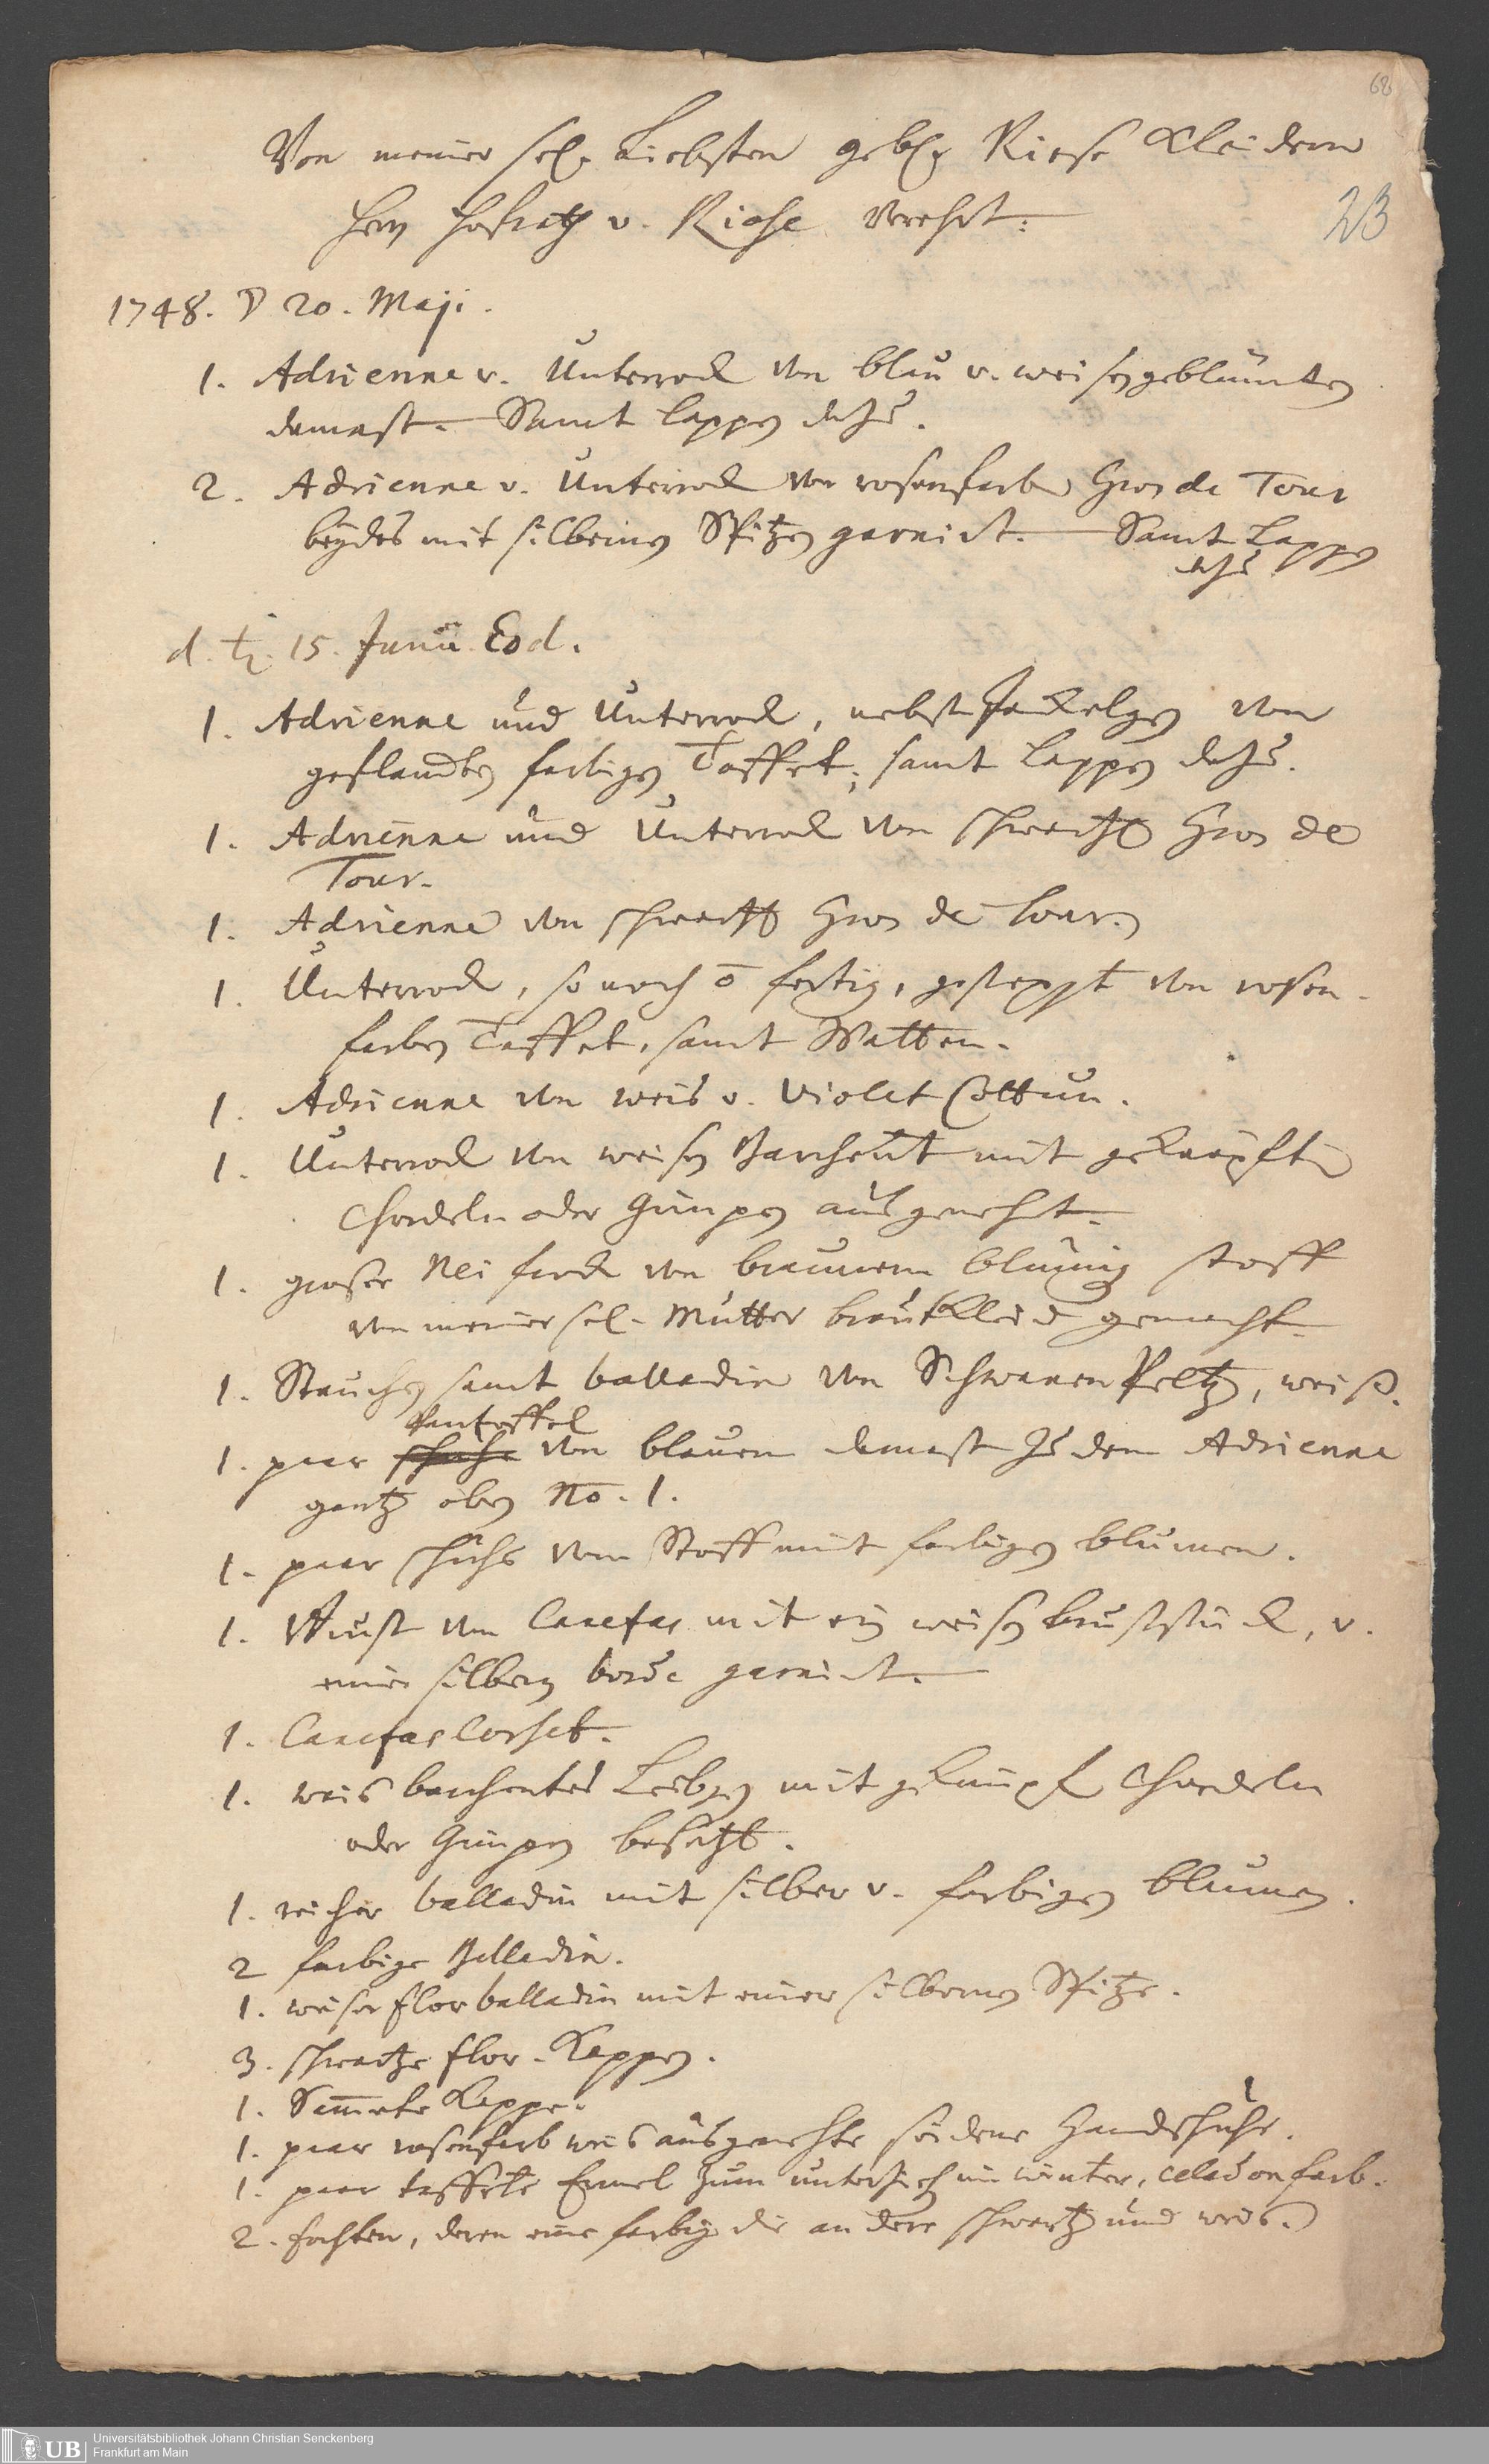 68
Von meiner sel. Liebsten gebh. Riese Kleidern
Hrn Hofrath v. Riese verehrt:
23
1748. ☽ 20. Maji.
1. Adrienne v. Unterrock von blau v. weisengeblümten
damast. Samt Lappen dazu.
2. Adrienne v. Unterrock von rosenfarben Gros de Tour
beydes mit silbernen Spitzen garnirt. Samt Lappen
dazu.
d. ♄. 15. Junii Eod.
1. Adrienne und Unterrock, nebst von
geflandten farbigen Taffet; samt Lappen dazu.
1. Adrienne und Unterrock von schwartz Gros de
Tour.
1. Adrienne von schwartz Gros de Tour.
1. Unterrock, so noch ō fertig, gesteppt von rosen-
farben Taffet, samt Watten.
1. Adrienne von weis v. violet Cottun.
1. Unterrock von weisen Barchent mit geknüpften
Chordeln oder Gimpen ausgenehet.
1. groser von braunem blumig stoff
von meiner sel. Mutter brautkleid gemacht.
1. Stauchen samt balladin von Schwanen Peltz, weiß.
Pantoffel
1. paar schuhe von blauen damast zu dem Adrienne
gantz oben No. 1.
1. paar schuhe von Stoff mit farbigen blumen.
1. von Canefas mit ein weisen bruststück, v.
einer silbern borde garnirt.
1. Canefas Corset.
1. weis barchentes Leibgen mit geknüpft Chordeln
oder Gimpen besetzt.
1. reicher balladin mit silber v. farbigen blumen.
2 farbige Balladin.
1. weiser flor balladin mit einer silbernen Spitze.
3. schwartze flor-Kappen.
1. Sam̅ete Kappe.
1. paar rosenfarb weis ausgenehte seidene Handschuhe.
1. paar taffete Ermel zum unterziehen im winter, celadonfarb.
2. fechten, deren eine farbig die andere schwartz und weis.
UB
Universitätsbibliothek Johann Christian Senckenberg
Frankfurt am Main